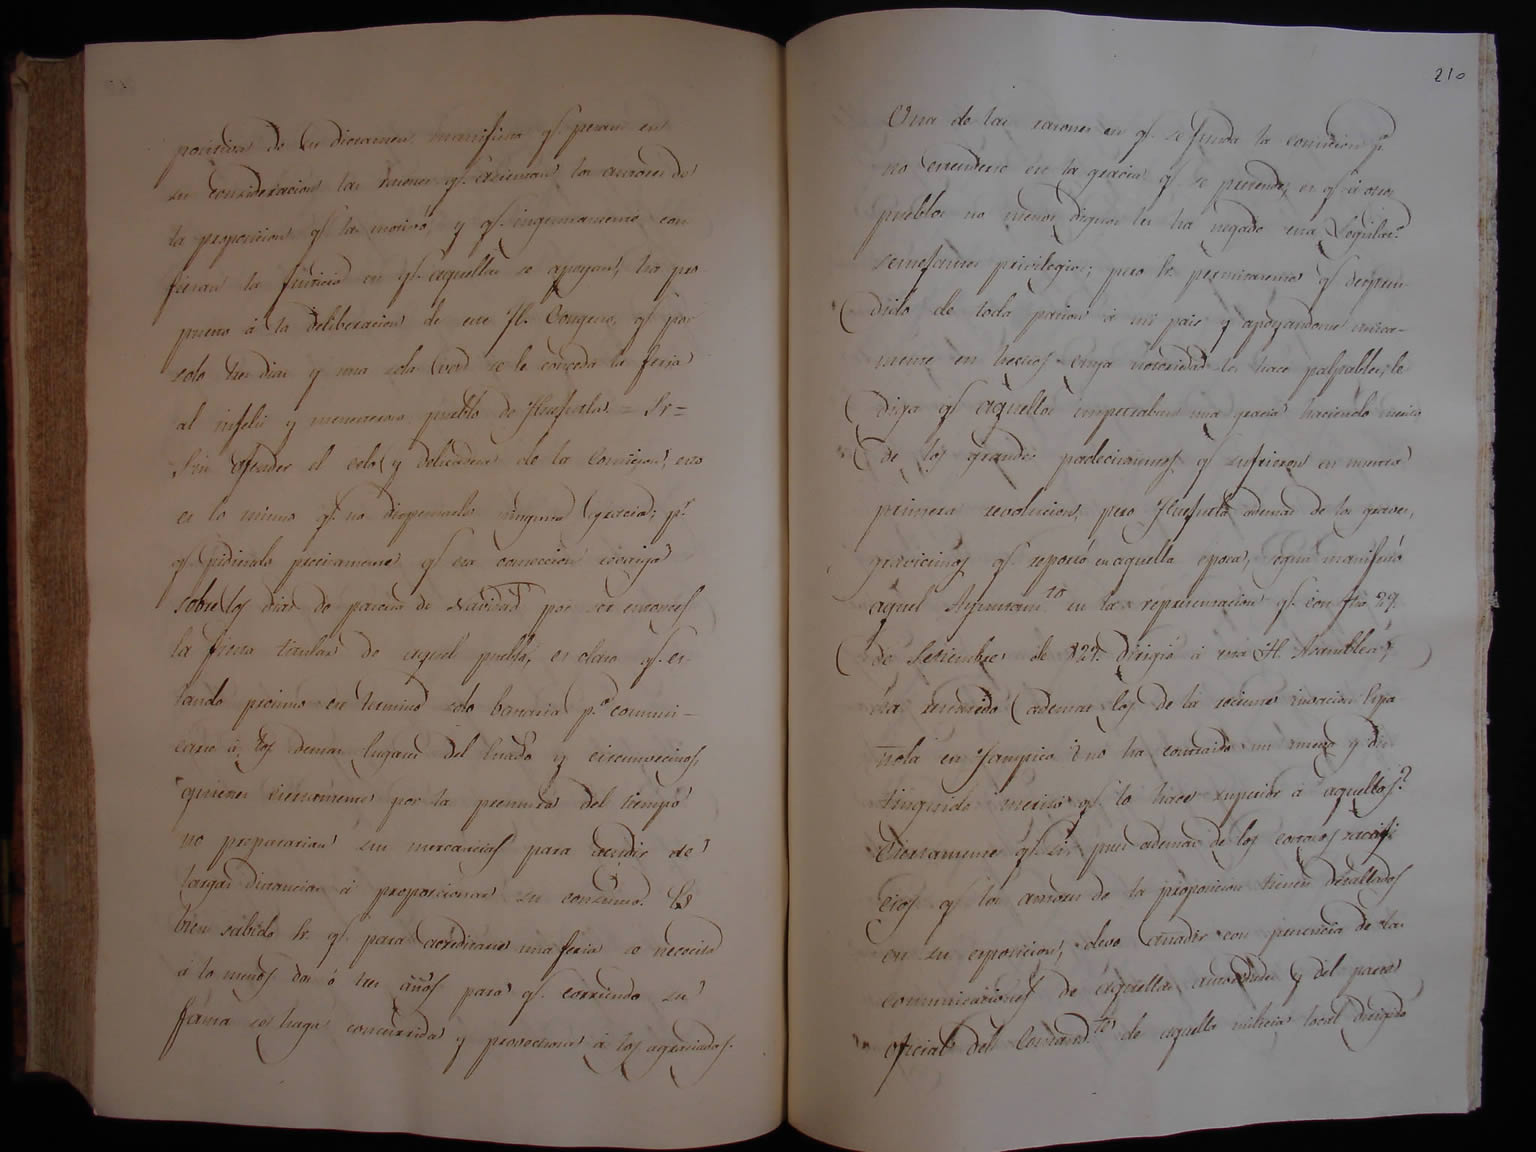 positiva de su dictamen, manifiesta qe. pesaron en
su consideracion las razones qe. esternan los autores de
la proposicion qe. la motivó, y qe. ingenuamente con
fiesan la justicia en qe. aquellas se apoyan, ha pro
puesto á la deliberacion de este H. Congreso, qe. por
solo tres dias y una sola vez se le conceda la feria
al infeliz y menesteroso pueblo de Huejutla. = Sr =
Sin ofender el celo y delicadeza de la Comision, esto
es lo mismo qe. no dispensarle ninguna gracia; pr.
qe. pidiendo precisamente qe. esa concesion recaiga
sobre los dias de pascua de Navidad por ser entonces
la fiesta titular de aquel pueblo, es claro qe. es-
tando procsimo ese termino solo bastaria pa. comuni-
carse á los demas lugares del Estado y circunvecinos,
quienes ciertamente por la premura del tiempo
no prepararian sus mercancias para acudir de
largas distancias á proporcionar su consumo. Es
bien sabido Sr. qe. para acreditarse una feria se necesita
á lo menos dos ó tres años para qe. corriendo su
fama se haga concurrida y provechosa á los agraciados.
210
Una de las razones en qe. se funda la comision pa.
no estenderse en la gracia qe. se pretende, es qe. á otros
pueblos no menos dignos les ha negado esta Legislra.
semejantes privilegios; pero se me permitirá qe. despren-
dido de toda pasion á mi pais y apoyandome unica-
mente en hechos cuya notoriedad los hace palpables, le
diga qe. aquellos impetraban una gracia haciendo merito
de los grandes padecimientos qe. sufrieron en nuestra
primera revolucion, pero Huejutla ademas de los graves
perjuicios qe. reportó en aquella epoca, segun manifestó
aquel Ayuntamto. en la representacion qe. con fha 29
de Setiembre de 827. dirigió á esta H. Asamblea,
ha resentido ademas los de la reciente invasion Espa
ñola en Tampico ¿no ha contraido un nuevo y dis
tinguido merito qe. lo hace superior á aquellos?
Ciertamente qe. si, pues ademas de los costosos sacrifi
cios qe. los autores de la proposicion tienen detallados
en su exposicion, devo añadir con presencia de las
comunicaciones de aquellas autoridades y del parte
oficial del Comandte. de aquella milicia local dirigido